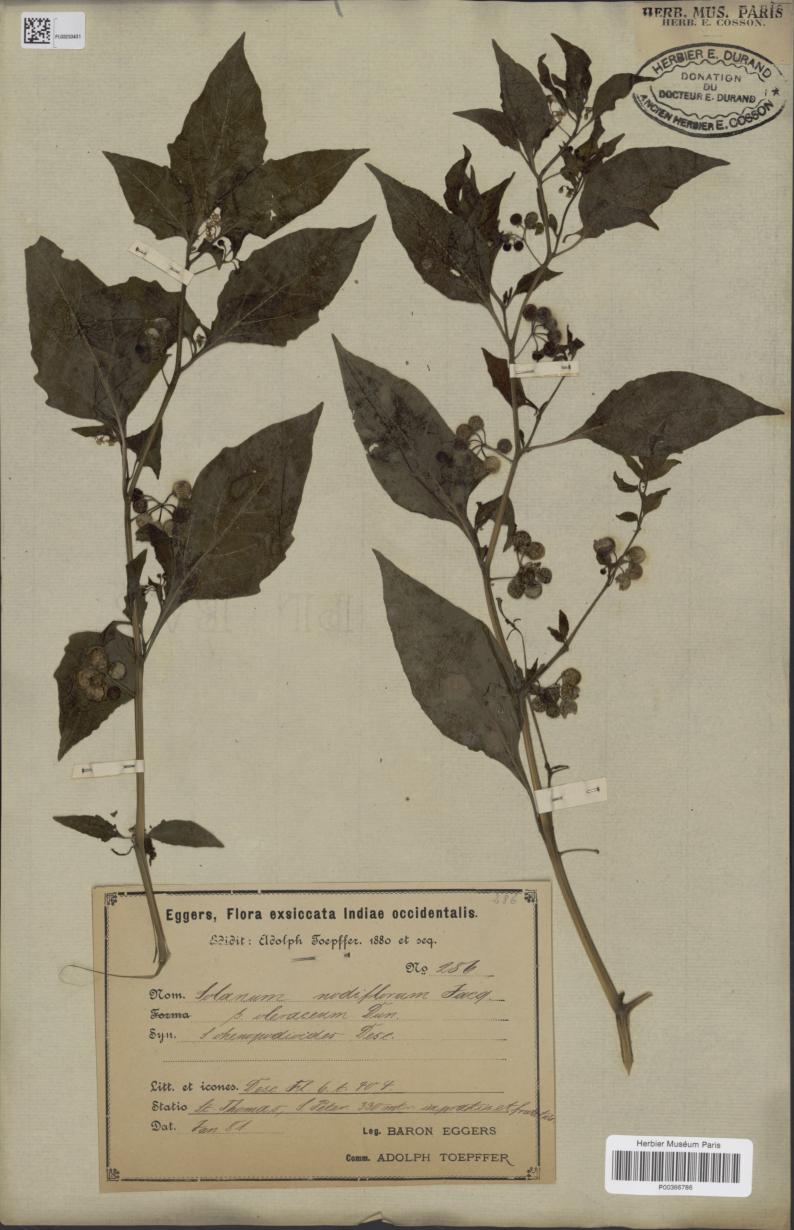 HERB. MUS. PARIS
HERB. E. COSSON.
HERBIER E. DURAND
DONATION
DU
DOCTEUR E. DURAND
ANCIEN HERBIER E. COSSON
286
Eggers, Flora exsiccata Indiae occidentalis.
Edidit: Adolph Toepffer. 1880 et seq.
No 286
Nom. Solanum nodiflorum Jacq.
Forma β. oleraceum Dun.
Syn. S chenopodioides Desc.
Litt. et icones. Desc Fl 6. t. 404
Statio St. Thomas, S. Peter 330 mtr. in pratis et
Dat. Jan 81
Leg. BARON EGGERS
Comm. ADOLPH TOEPFFER
Herbier Muséum Paris
P00366786